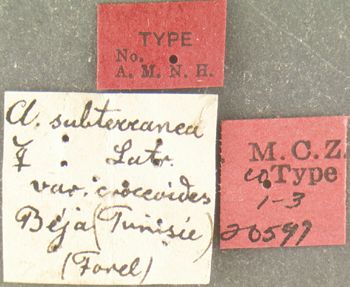 TYPE
No.
A. M. N. H.
A. subterranea
☿ Latr.
var. croceoides
Béja (Tunisie)
(Forel)
M. C. Z.
coType
1-3
20597